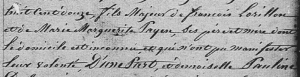 cent douze, fils Majeur de francois Lorillon
et de Marie Marguerite Payen Ses pere et mere dont
le domicile est inconnu et qui n'ont pu manifester
leur volonté. D'une Part, et demoiselle Pauline